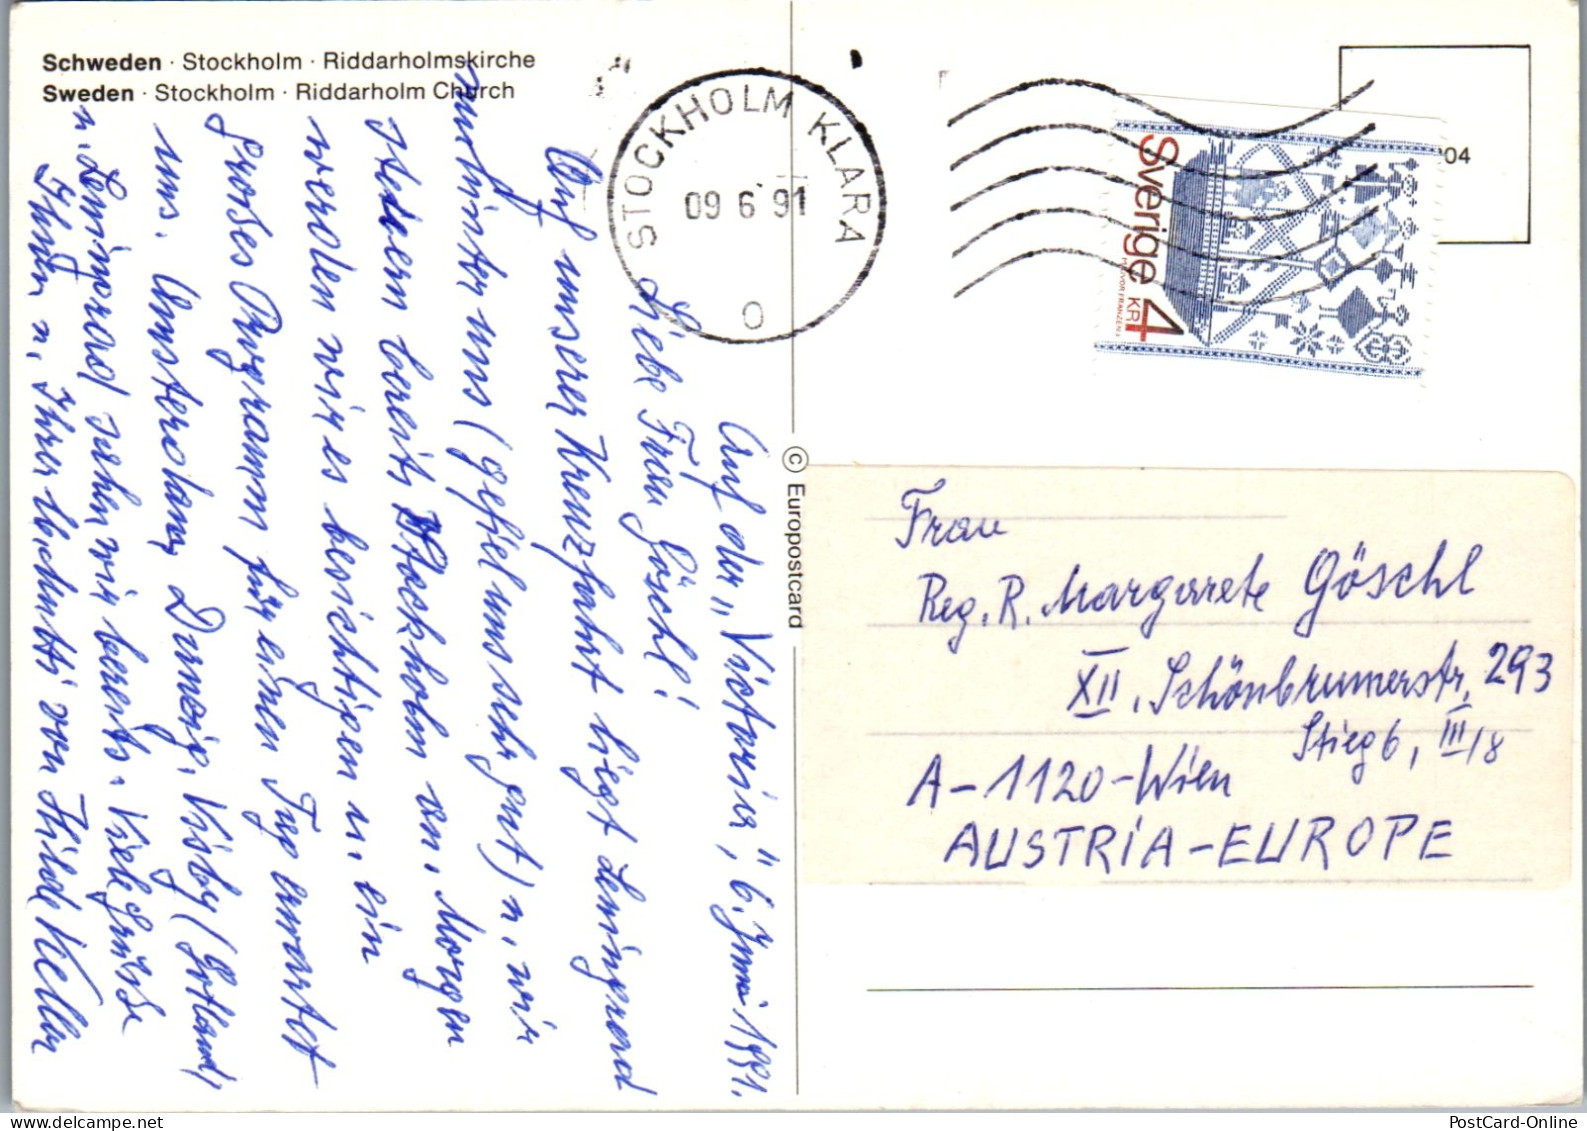 Schweden · Stockholm · Riddarholmskirche
Sweden · Stockholm · Riddarholm Church
STOCKHOLM KLARA
09 6 91
O
Sverige 4 KR
04
© Europostcard
Auf der „Victoria", 6. Juni 1991.
Liebe Frau Göschl!
Auf unserer Kreuzfahrt liegt Leningrad
hinter uns (gefiel uns sehr gut) u. wir
steuern bereits Stockholm an. Morgen
werden wir es besichtigen u. ein
großes Programm für einen Tag erwartet
uns. Amsterdam, Danzig, Visby (Gotland)
u. Leningrad sahen wir bereits. Viele Grüße
Ihnen u. Ihrer von Hilde Keller
Frau
Reg. R. Margarete Göschl
XII, Schönbrunnerstr. 293
Stieg 6, III/8
A-1120-Wien
AUSTRIA-EUROPE
PostCard-Online